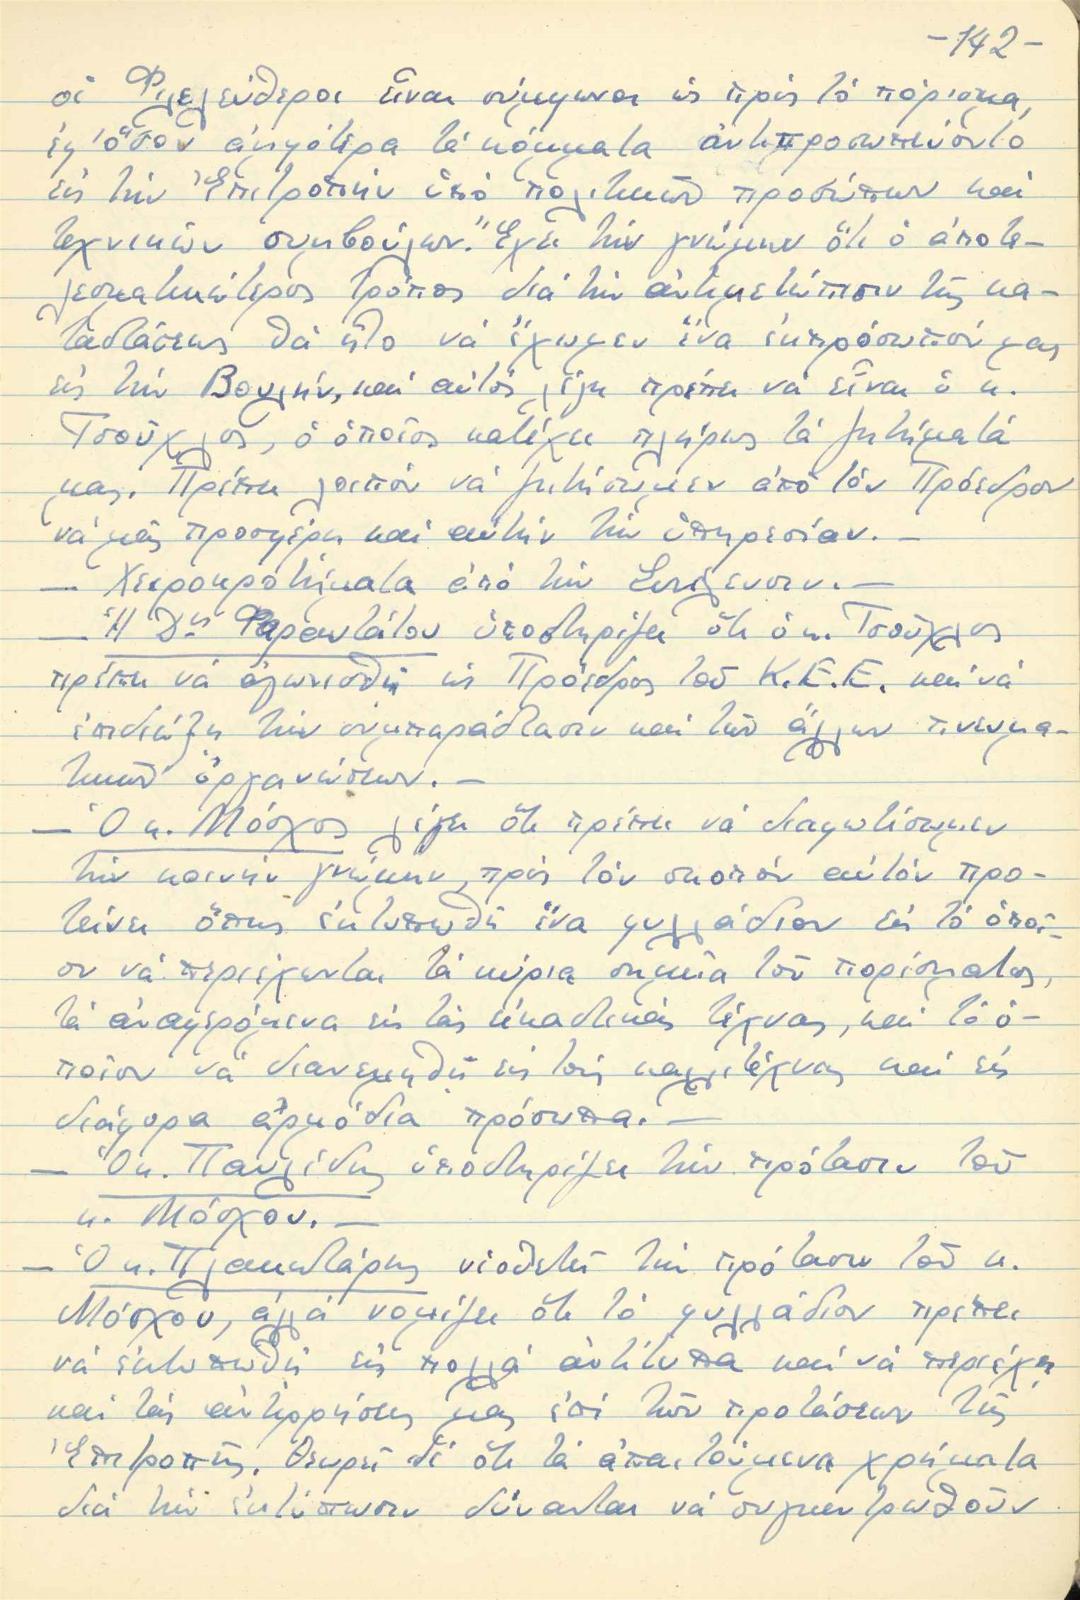 -142-
οἱ Φιλελεύθεροι εἶναι σύμφωνοι ὡς πρός τό πόρισμα,
ἐφ' ὅσον ἀμφότερα τά κόμματα ἀντιπροσωπεύοντο
εἰς τήν Ἐπιτροπήν ὑπό πολιτικῶν προσώπων καί
τεχνικῶν συμβούλων." Ἔχει τήν γνώμην ὅτι ὁ ἀποτε-
λεσματικώτερος τρόπος διά τήν ἀντιμετώπισιν τῆς κα-
ταστάσεως θά ἦτο νά ἔχωμεν ἕνα ἐκπρόσωπόν μας
εἰς τήν Βουλήν, καί αὐτός λέγει πρέπει νά εἶναι ὁ κ.
Τσοῦχλος, ὁ ὁποῖος κατέχει πλήρως τά ζητήματά
μας. Πρέπει λοιπόν νά ζητήσωμεν ἀπό τόν Πρόεδρον
νά μᾶς προσφέρη καί αὐτήν τήν ὑπηρεσίαν.-
- Χειροκροτήματα ἀπό τήν Συνέλευσιν.-
- Ἡ Δνίς Φαραντάτου ὑποστηρίζει ὅτι ὁ κ. Τσοῦχλος
πρέπει νά ἀγωνισθῆ ὡς Πρόεδρος τοῦ Κ.Ε.Ε. καί νά
ἐπιδιώξη τήν συμπαράστασιν καί τῶν ἄλλων πνευμα-
τικῶν ὀργανώσεων.-
- Ὁ κ. Μόσχος λέγει ὅτι πρέπει νά διαφωτίσωμεν
τήν κοινήν γνώμην, πρός τόν σκοπόν αὐτόν προ-
τείνει ὅπως ἐκτυπωθῆ ἕνα φυλλάδιον εἰς τό ὁποῖ-
ον νά περιέχωνται τά κύρια σημεῖα τοῦ πορίσματος,
τά ἀναφερόμενα εἰς τάς εἰκαστικάς τέχνας, καί τό ὁ-
ποῖον νά διανεμηθῆ εἰς τούς καλλιτέχνας καί εἰς
διάφορα ἁρμόδια πρόσωπα.-
- Ὁ κ. Παυλίδης ὑποστηρίζει τήν πρότασιν τοῦ
κ. Μόσχου.-
- Ὁ κ. Πλακωτάρης υἱοθετεῖ τήν πρότασιν τοῦ κ.
Μόσχου, ἀλλά νομίζει ὅτι τό φυλλάδιον πρέπει
νά ἐκτυπωθῆ εἰς πολλά ἀντίτυπα καί νά περιέχη
καί τάς ἀντιρρήσεις μας ἐπί τῶν προτάσεων τῆς
Ἐπιτροπῆς. Θεωρεῖ δέ ὅτι τά ἀπαιτούμενα χρήματα
διά τήν ἐκτύπωσιν δύνανται νά συγκεντρωθοῦν